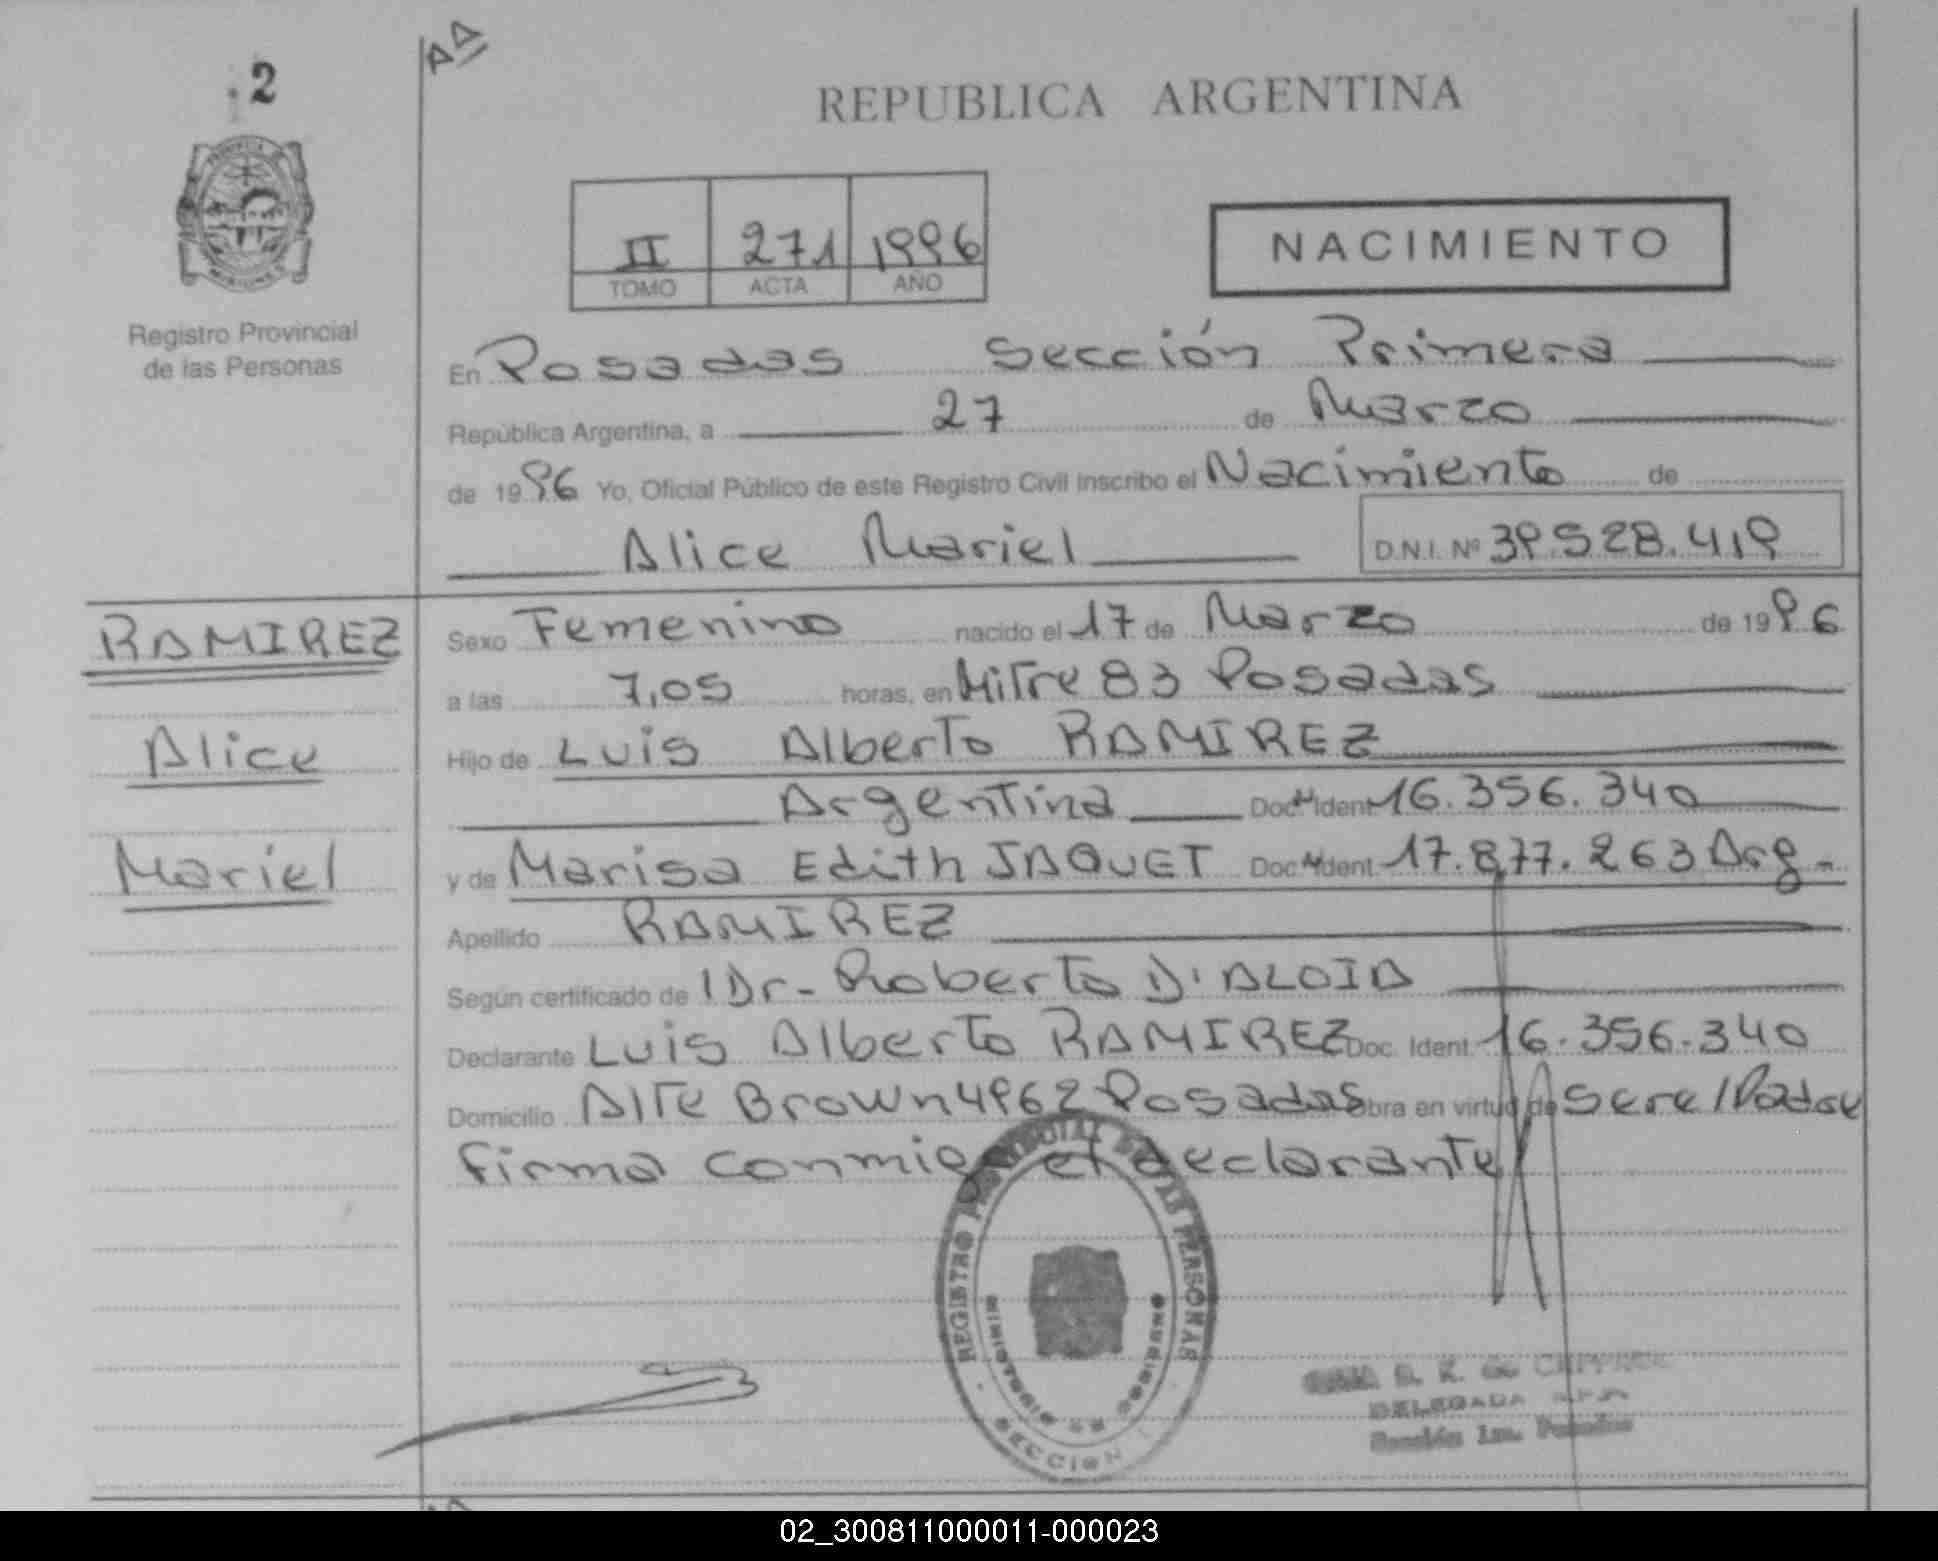 2
REPUBLICA ARGENTINA
II 271 1996
TOMO ACTA AÑO
NACIMIENTO
Registro Provincial
de las Personas
En Posadas Sección Primera
República Argentina, a 27 de Marzo
de 1996 Yo, Oficial Público de este Registro Civil inscribo el Nacimiento de
Alice Mariel D.N.I. Nº 39.528.419
RAMIREZ
Alice
Mariel
Sexo Femenino nacido el 17 de Marzo de 1996
a las 7,05 horas, en Mitre 83 Posadas
Hijo de Luis Alberto RAMIREZ
Argentina Doc. Ident. 16.356.340
y de Marisa Edith JAQUET Doc. Ident. 17.877.263 Arg.
Apellido RAMIREZ
Según certificado de l Dr- Roberto D'ALOIA
Declarante Luis Alberto RAMIREZ Doc. Ident. 16.356.340
Domicilio Alte Brown 4962 Posadas Obra en virtud de Ser el Padre
firma conmigo el declarante
REGISTRO PROVINCIAL DE LAS PERSONAS
MINISTERIO DE GOBIERNO
SECCION 1
DELEGADA
Sección 1ra. Posadas
02_300811000011-000023